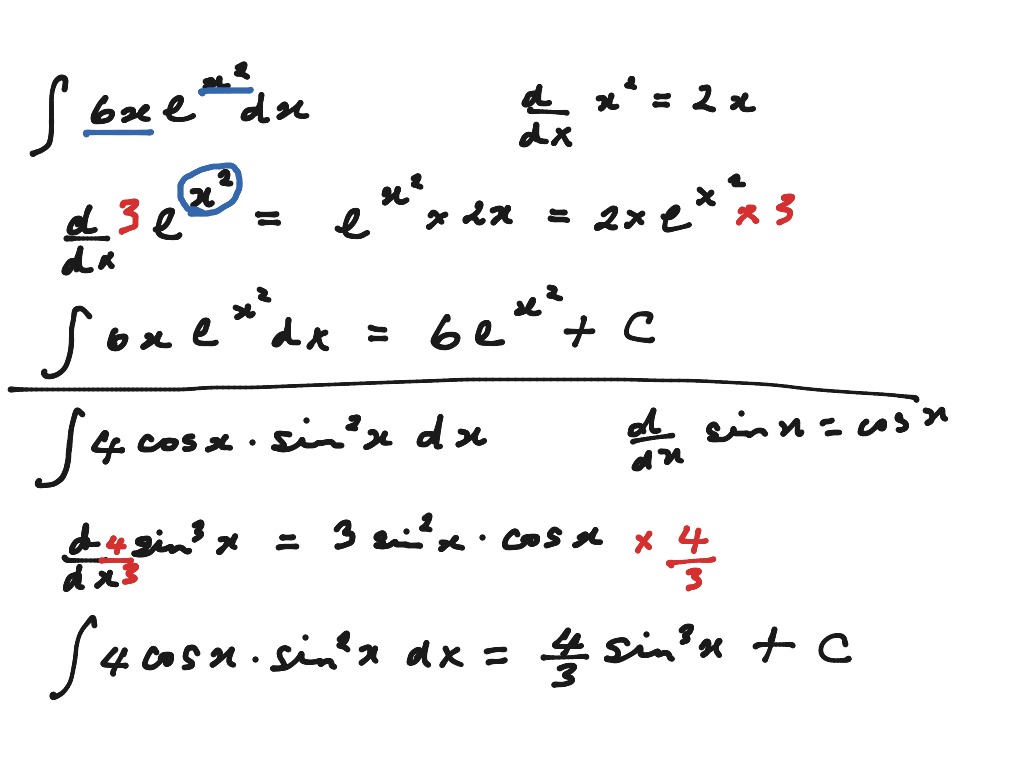 ∫ 6x e^{x^2} dx    d/dx x^2 = 2x
d/dx 3 e^{x^2} = e^{x^2} × 2x = 2x e^{x^2} × 3
∫ 6x e^{x^2} dx = 6e^{x^2} + C
∫ 4 cosx · sin^2 x dx    d/dx sin x = cos x
d/dx 4/3 sin^3 x = 3 sin^2 x · cos x × 4/3
∫ 4 cos x · sin^2 x dx = 4/3 sin^3 x + C